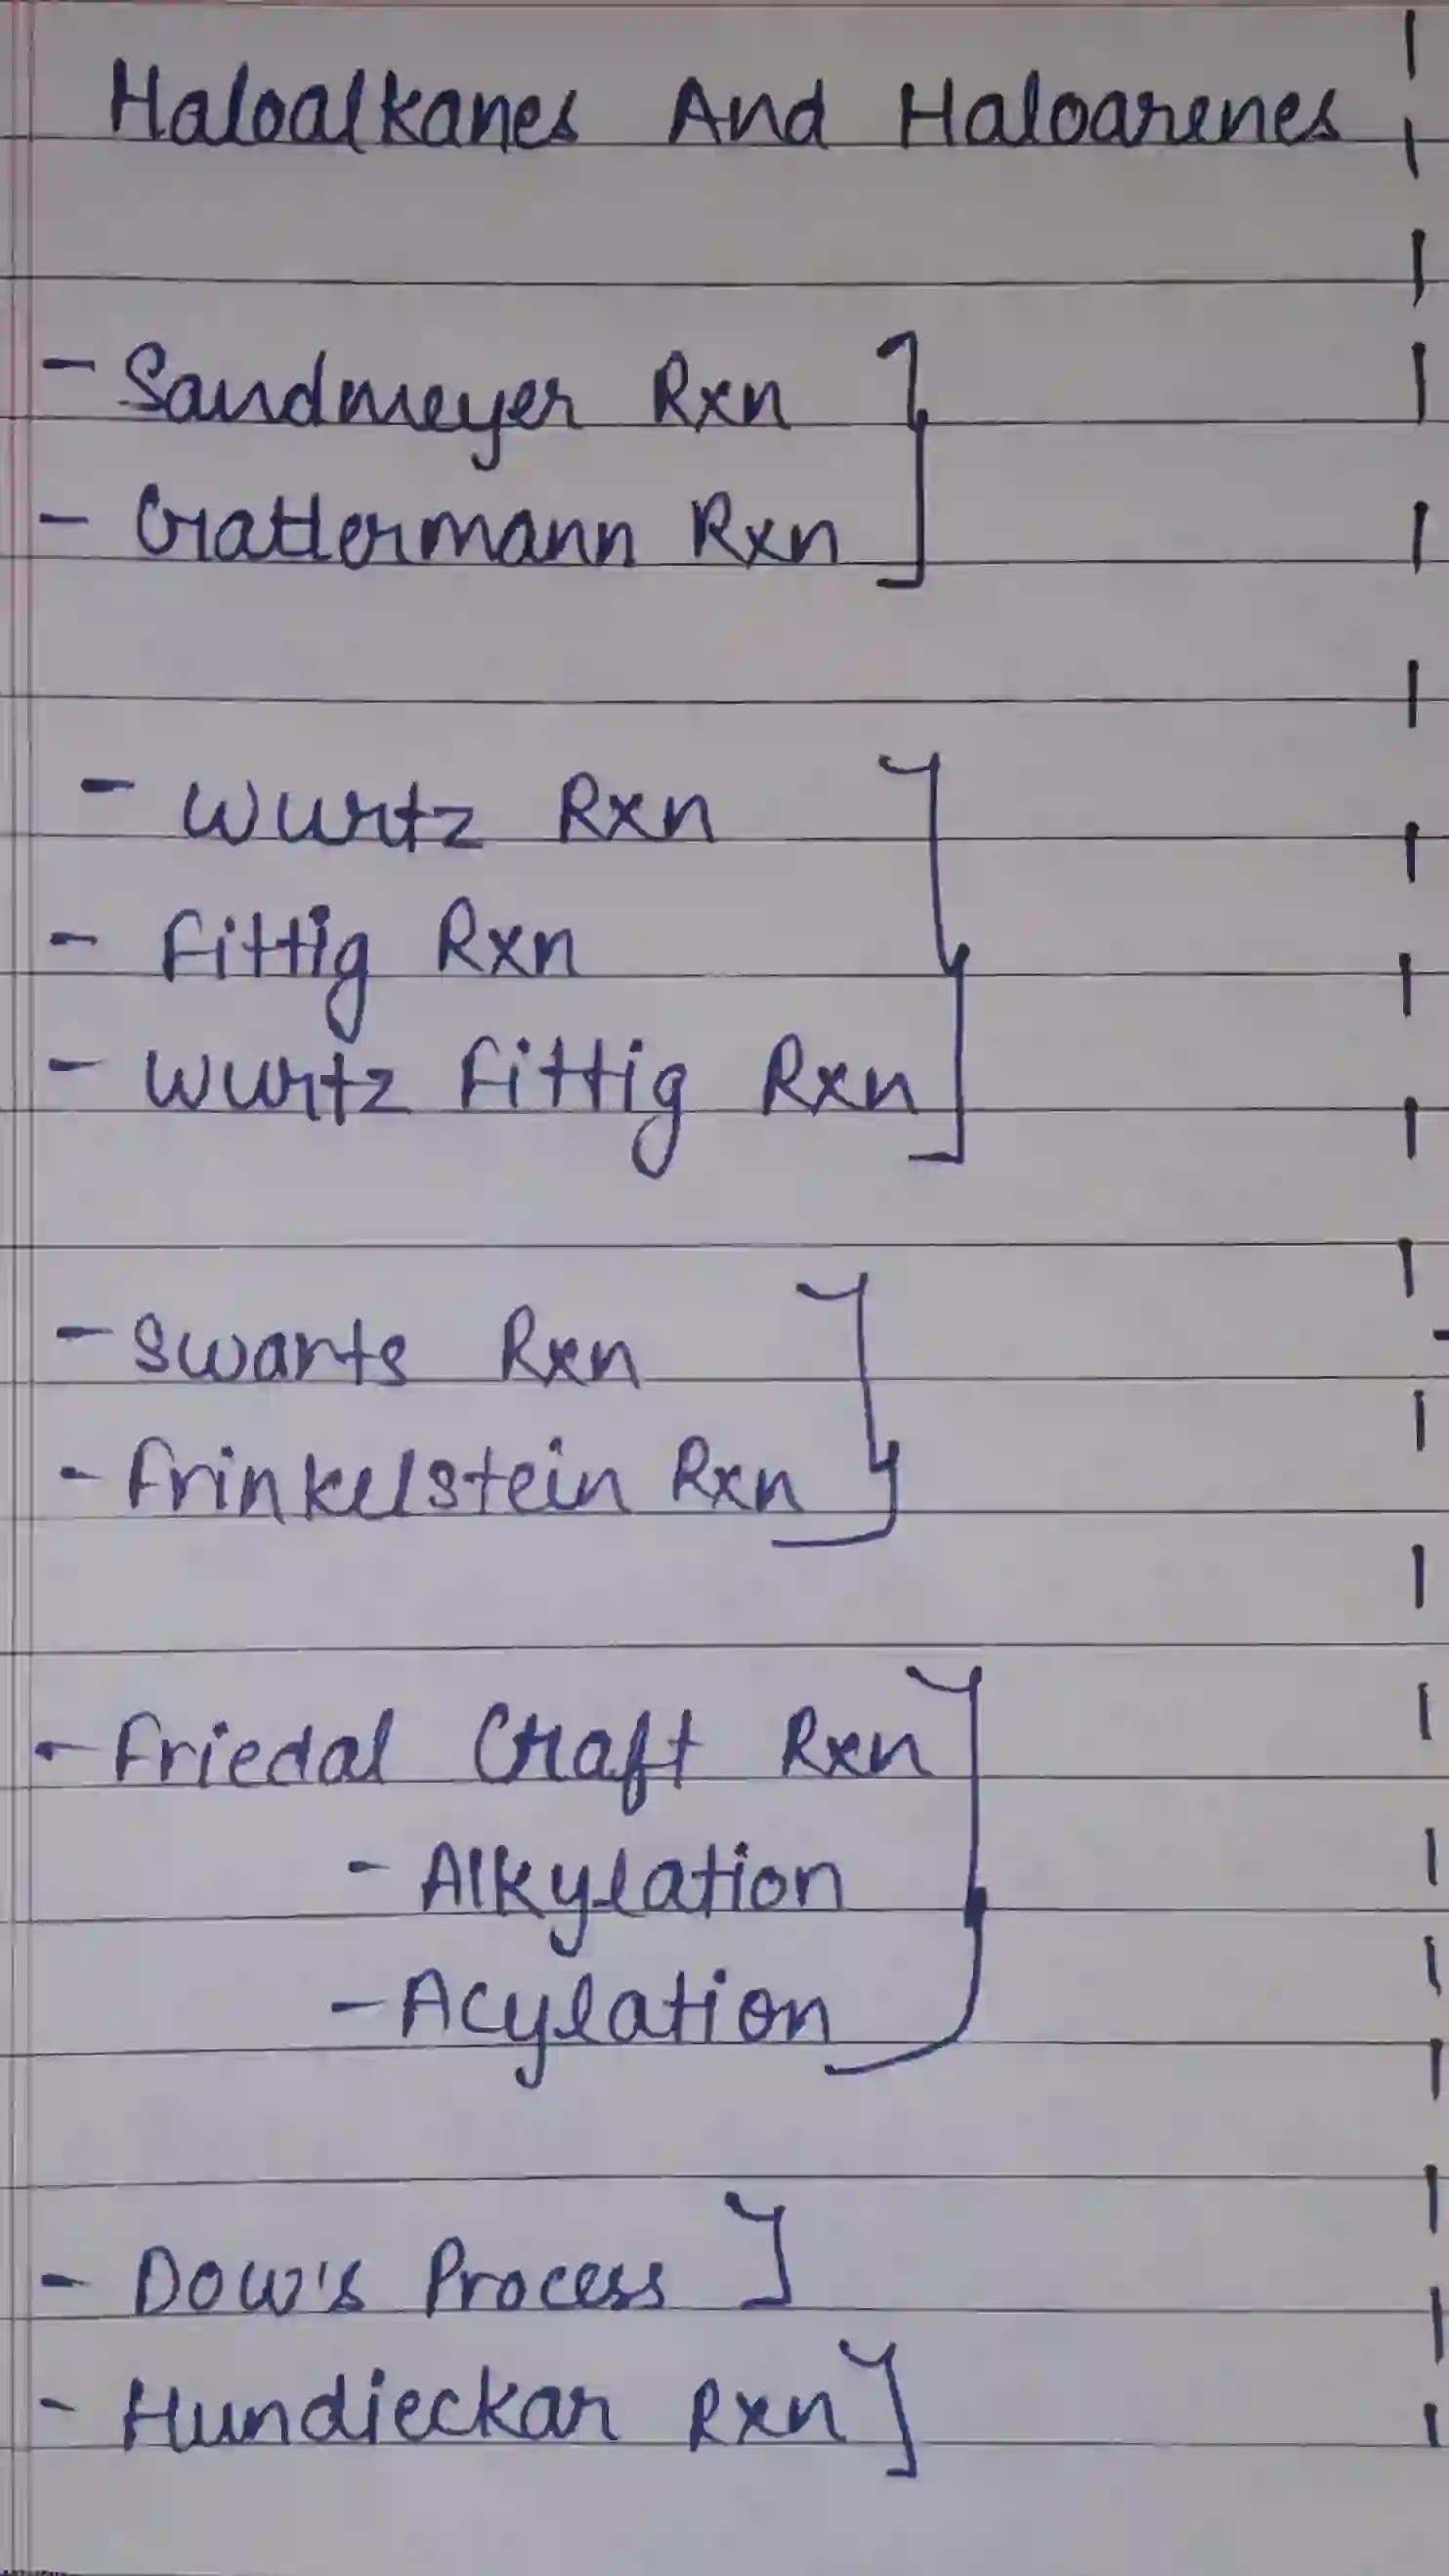 Haloalkanes And Haloarenes
- Sandmeyer Rxn
- Gattermann Rxn
- Wurtz Rxn
- Fittig Rxn
- Wurtz Fittig Rxn
- Swarts Rxn
- Frinkelstein Rxn
- Friedal Craft Rxn
- Alkylation
- Acylation
- Dow's Process
- Hundieckar Rxn